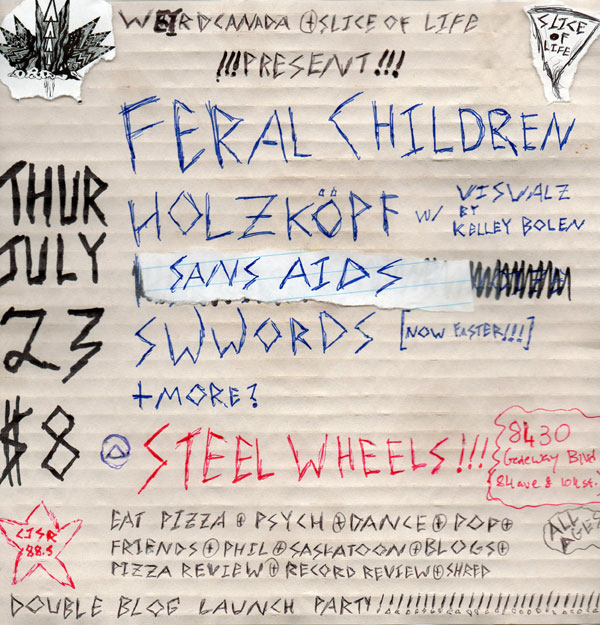 WEIRD CANADA + SLICE OF LIFE
SLICE OF LIFE
!!!PRESENT!!!
FERAL CHILDREN
THUR
JULY
23
$8
HOLZKÖPF w/ VISUALZ BY KELLEY BOLEN
SANS AIDS
SWWORDS [NOW FASTER!!!]
+MORE?
@ STEEL WHEELS!!!
8430
Gateway Blvd
84 ave & 104 st.
CJSR
88.5
EAT PIZZA + PSYCH + DANCE + POP +
FRIENDS + PHIL + SASKATOON + BLOGS +
PIZZA REVIEW + RECORD REVIEW + SHRED
ALL AGES
DOUBLE BLOG LAUNCH PARTY!!!!!!!!!!!!!!!!!!!!!!!!!!!!